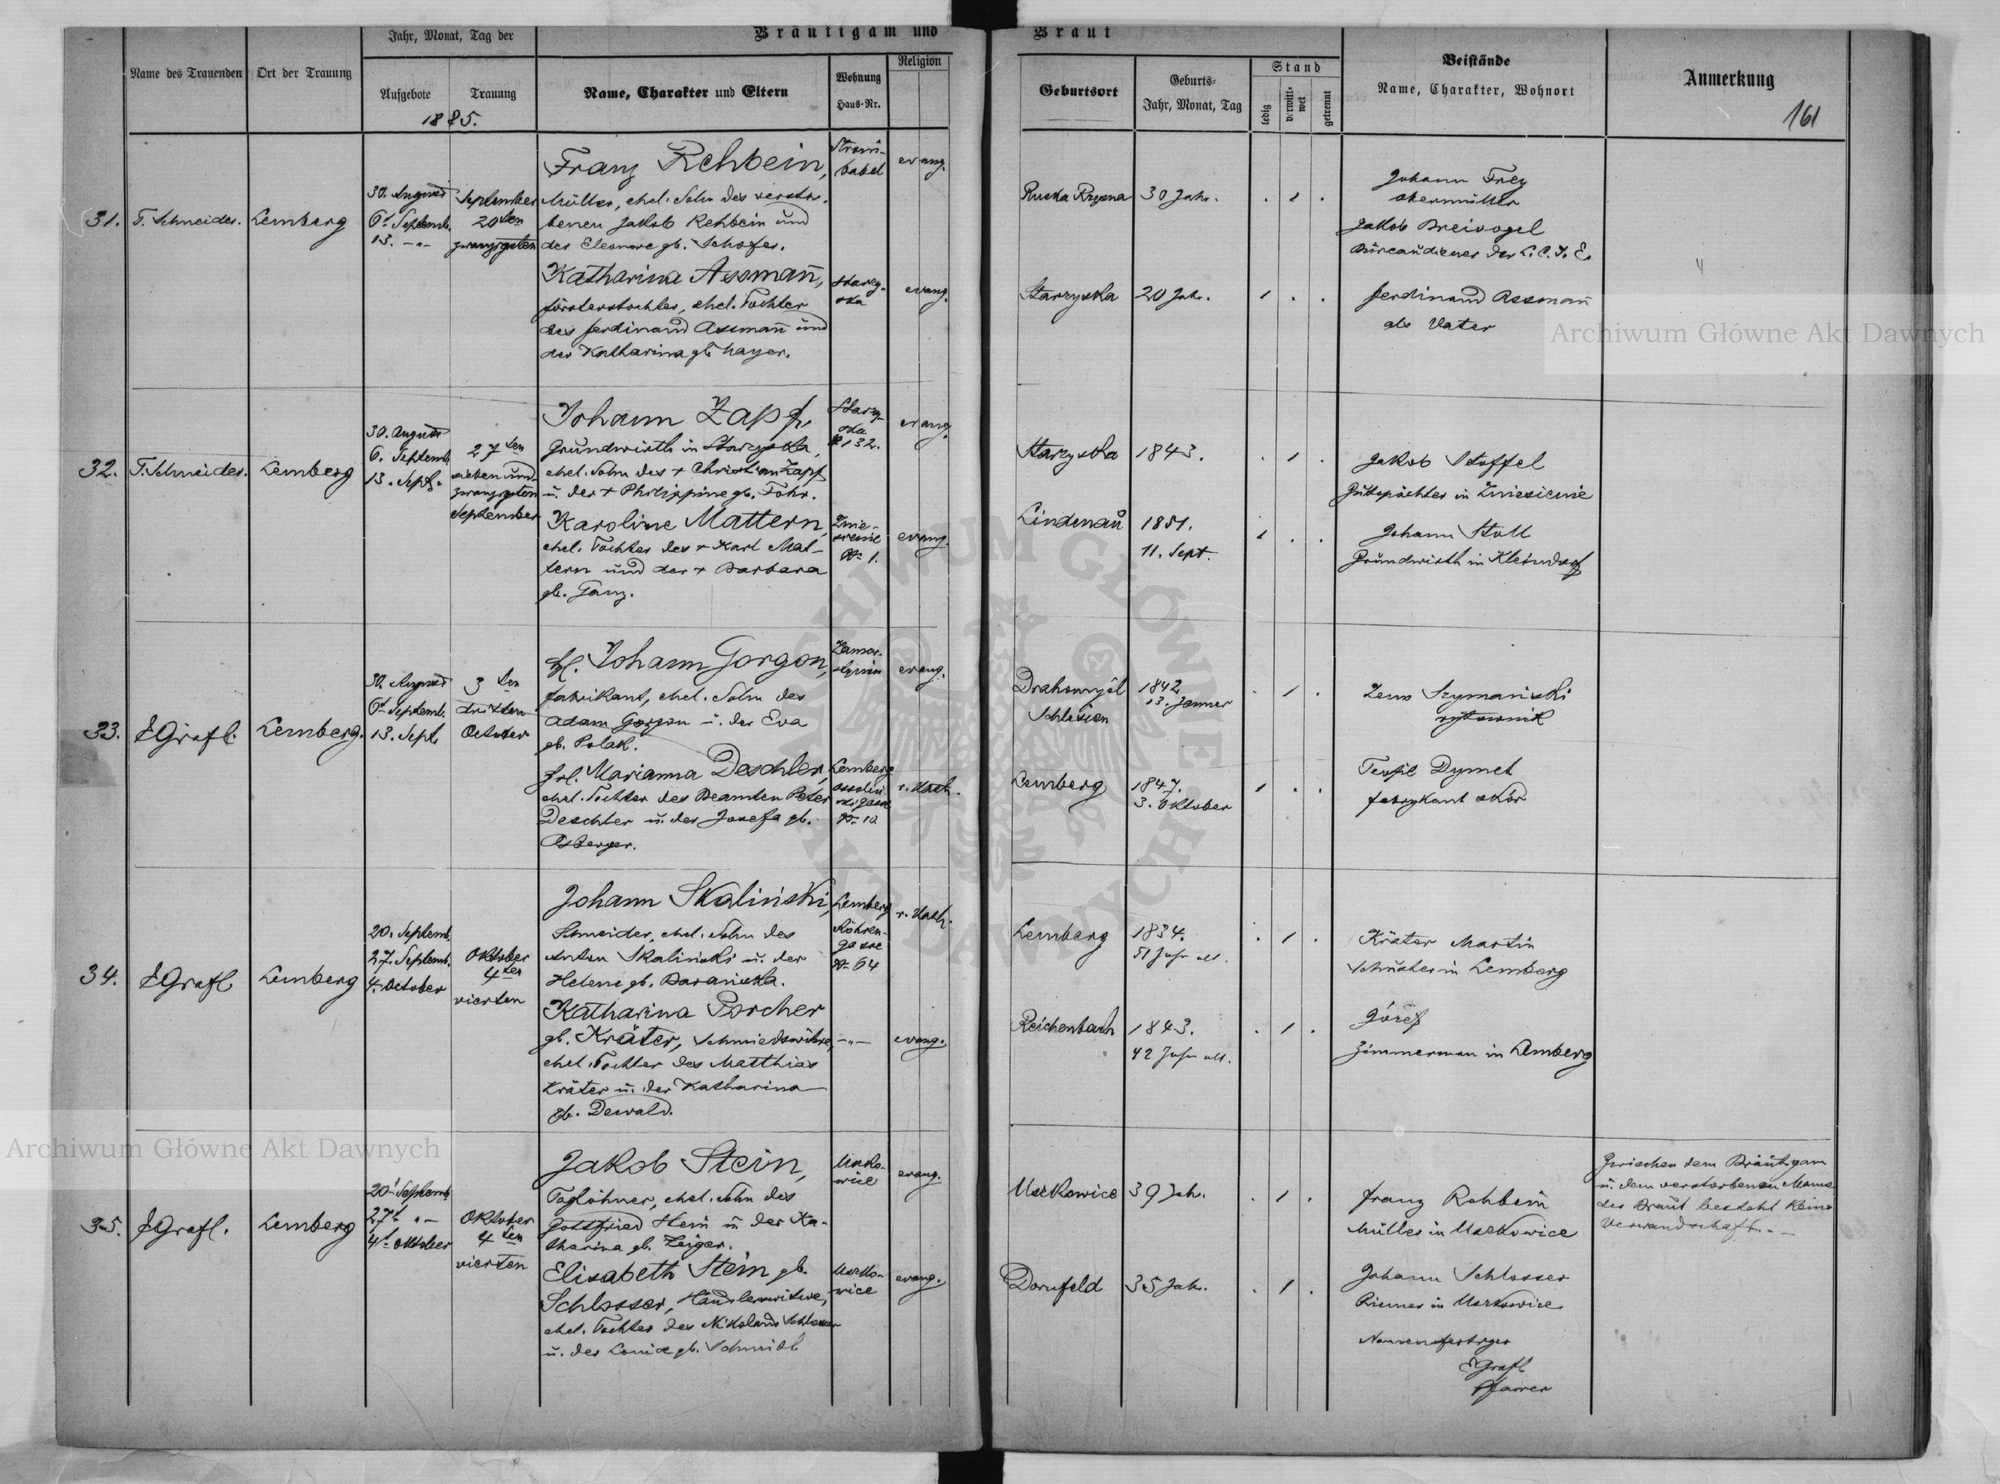 Bräutigam und
Braut
Name des Trauenden
Ort der Trauung
Jahr, Monat, Tag der
Aufgebote
Trauung
1885.
Name, Charakter und Eltern
Wohnung
Haus-Nr.
Religion
Geburtsort
Geburts-
Jahr, Monat, Tag
Stand
ledig
verwit-
wet
getrennt
Beistände
Name, Charakter, Wohnort
Anmerkung
161
31.
T. Schneider.
Lemberg
30. August
6t Septemb.
13. -"-
September
20ten
zwanzigsten
Franz Rehbein,
Müller, ehel. Sohn des verstor-
benen Jakob Rehbein und
der Eleonore gb. Schofer.
evang.
30 Jahr.
Johann Frey
Obermüller
Jakob Dreivogel
Büreaudiener der
Katharina Assmann,
Försterstochter, ehel. Tochter
des Ferdinand Assmann und
der Katharina gb. Mayer.
evang.
Starzyska
20 Jahr.
Ferdinand Assmann
als Vater
32.
T. Schneider.
Lemberg
30. August
6. Septemb.
13. Sept.
27ten
sieben und
zwanzigsten
September
Johann Zapf,
Grundwirth in Starzyska,
ehel. Sohn des + Christian Zapf
u. der + Philippine gb. Föhr.
Starzy-
ska
№ 132.
evang.
Starzyska
1843.
Jakob Stoffel
Gutspächter in Zniesienie
Karoline Mattern,
ehel. Tochter des + Karl Mat-
tern und der + Barbara
gb. Ganz.
Znie-
sienie
№ 1.
evang.
Lindenau
1851.
11. Sept.
Johann Stoll
Grundwirth in Kleindorf
33.
EGrafl
Lemberg.
30. August
6t Septemb.
13. Sept.
3ten
dritten
October
H. Johann Gorgon,
Fabrikant, ehel. Sohn des
Adam Gorgon u. der Eva
gb. Polak.
evang.
Schlesien
1842
13. Jänner
Szymański
rytownik
Frl. Marianna Deschler,
ehel. Tochter des Beamten Peter
Deschler u. der Josefa gb.
Lemberg
№ 10
r. kath.
Lemberg
1847.
3. Oktober
Teofil Dymet
fabrykant skór
34.
EGrafl
Lemberg
20. Septemb.
27. Septemb.
4. October
Oktober
4ten
vierten
Johann Skaliński,
Schneider, ehel. Sohn des
Anton Skaliński u. der
Helene gb. Baraniecka.
Lemberg
Röhren-
gasse
№ 64
r. kath.
Lemberg
1834.
51 Jahr alt.
Kräter Martin
Schuster in Lemberg
Katharina Porcher
gb. Kräter, Schmiedswitwe,
ehel. Tochter des Matthias
Kräter u. der Katharina
gb. Dewald.
-"-
evang.
Reichenbach
1843.
42 Jahr alt.
Józef
Zimmerman in Lemberg
35.
EGrafl.
Lemberg
20t Septemb.
27t "-
4t Oktober
Oktober
4ten
vierten
Jakob Stein,
Taglöhner, ehel. Sohn des
Gottfried Stein u. der Ka-
tharina gb. Zeiger.
evang.
39 Jahr.
Franz Rehbein
Müller in
Zwischen dem Bräutigam
u. dem verstorbenen Manne
der Braut besteht keine
Verwandschaft.-
Elisabeth Stein gb.
Schlosser, Händlerswitwe,
ehel. Tochter des Nikolaus Schlosser
u. der Louise gb. Schmidt
evang.
Dornfeld
35 Jahr.
Johann Schlosser
Riemer in
Namensfertiger
EGrafl
Pfarrer
Archiwum Główne Akt Dawnych
Archiwum Główne Akt Dawnych
ARCHIWUM GŁÓWNE AKT DAWNYCH